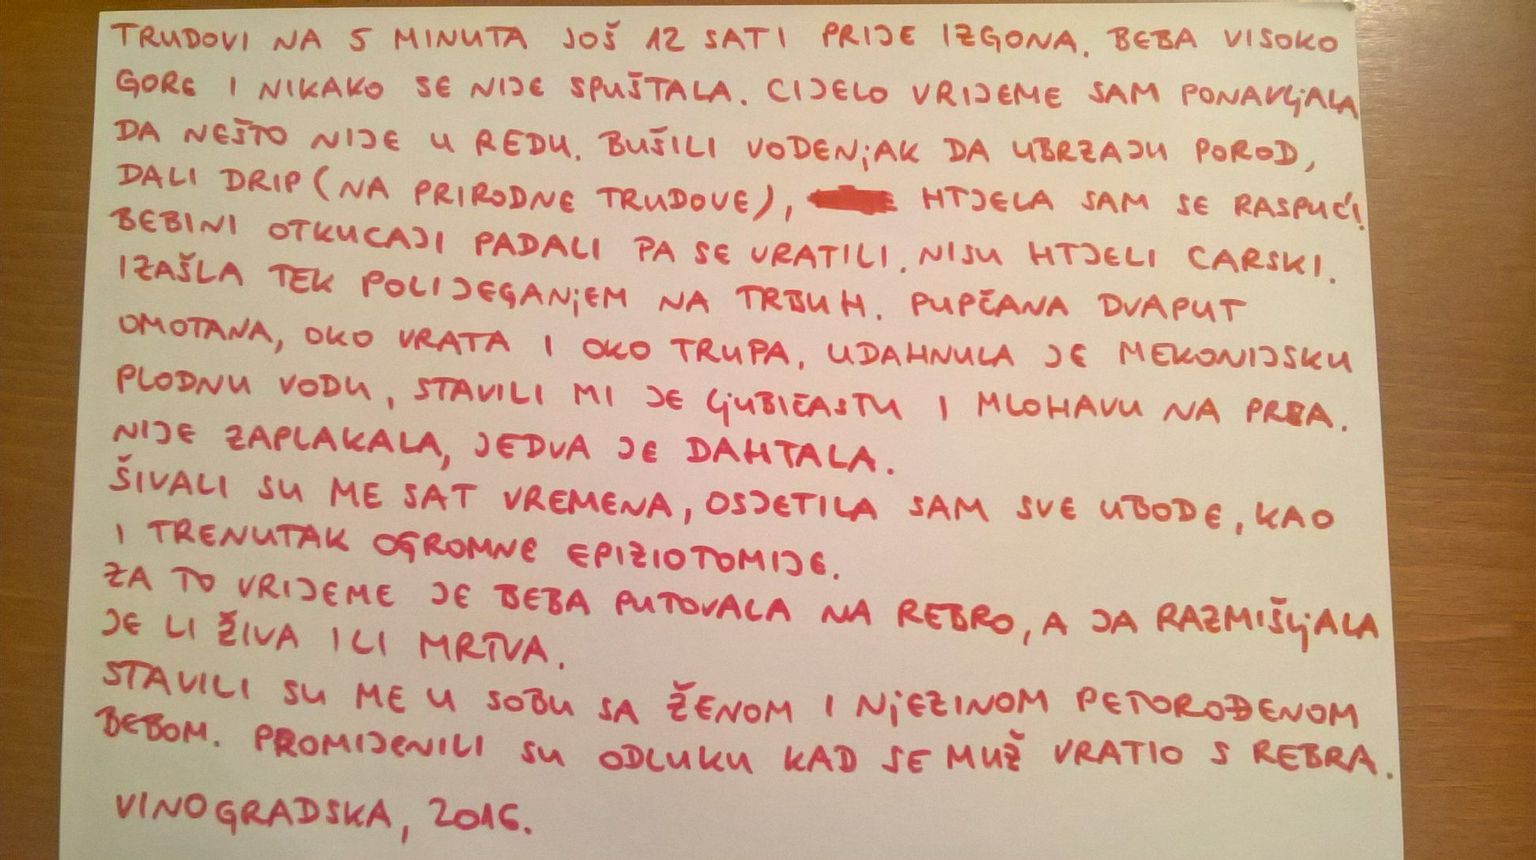 TRUDOVI NA 5 MINUTA JOŠ 12 SATI PRIJE IZGONA. BEBA VISOKO
GORE I NIKAKO SE NIJE SPUŠTALA. CIJELO VRIJEME SAM PONAVLJALA
DA NEŠTO NIJE U REDU. BUŠILI VODENJAK DA UBRZAJU POROD,
DALI DRIP (NA PRIRODNE TRUDOVE), HTJELA SAM SE RASPUĆI.
BEBINI OTKUCAJI PADALI PA SE VRATILI. NISU HTJELI CARSKI.
IZAŠLA TEK POLIJEGANJEM NA TRBUH. PUPČANA DVAPUT
OMOTANA, OKO VRATA I OKO TRUPA, UDAHNULA JE MEKONIJSKU
PLODNU VODU, STAVILI MI JE LJUBIČASTU I MLOHAVU NA PRSA.
NIJE ZAPLAKALA, JEDVA JE DAHTALA.
ŠIVALI SU ME SAT VREMENA, OSJETILA SAM SVE UBODE, KAO
I TRENUTAK OGROMNE EPIZIOTOMIJE.
ZA TO VRIJEME JE BEBA PUTOVALA NA REBRO, A JA RAZMIŠLJALA
JE LI ŽIVA ILI MRTVA.
STAVILI SU ME U SOBU SA ŽENOM I NJEZINOM PETOROĐENOM
BEBOM. PROMIJENILI SU ODLUKU KAD SE MUŽ VRATIO S REBRA.
VINOGRADSKA, 2016.